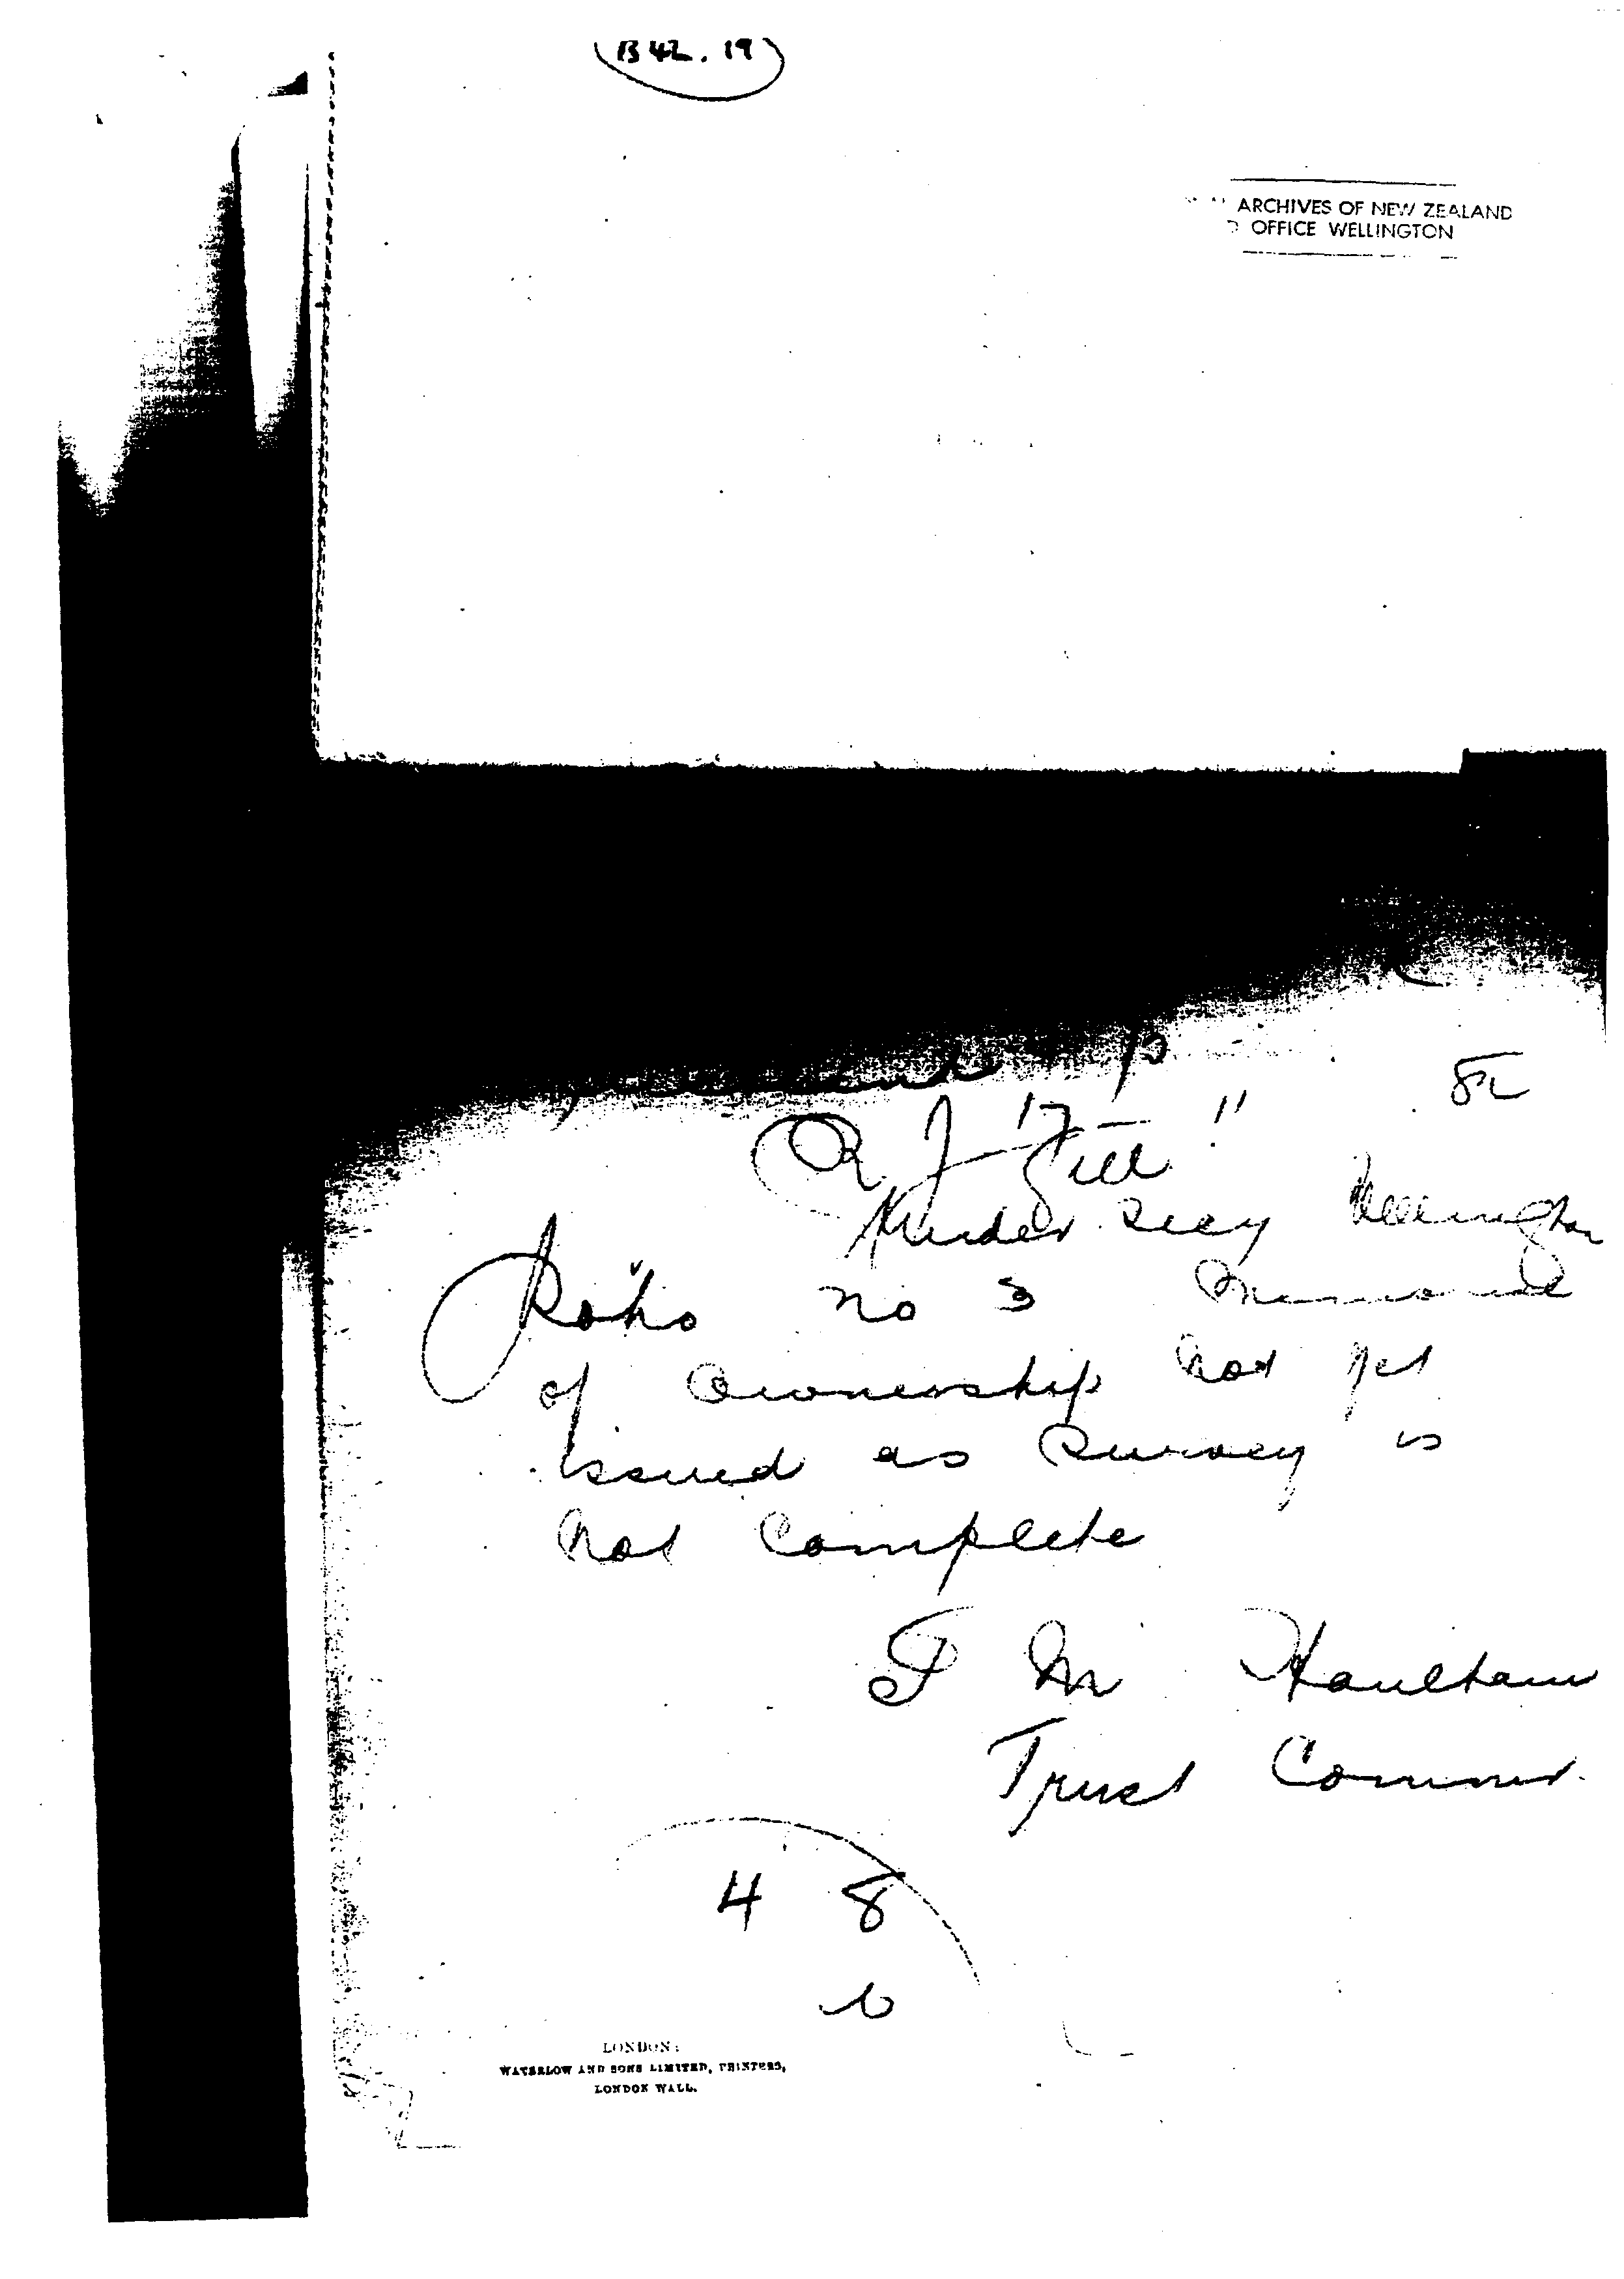 B 42. 19
ARCHIVES OF NEW ZEALAND
OFFICE WELLINGTON
82
17 11
R J Gill
Under Secy Wellington
no 3 Memorial
of Ownership not yet
issued as Survey is
not Complete
T M Haultain
Trust Commr.
4 8
LONDON:
WATERLOW AND SONS LIMITED, PRINTERS,
LONDON WALL.